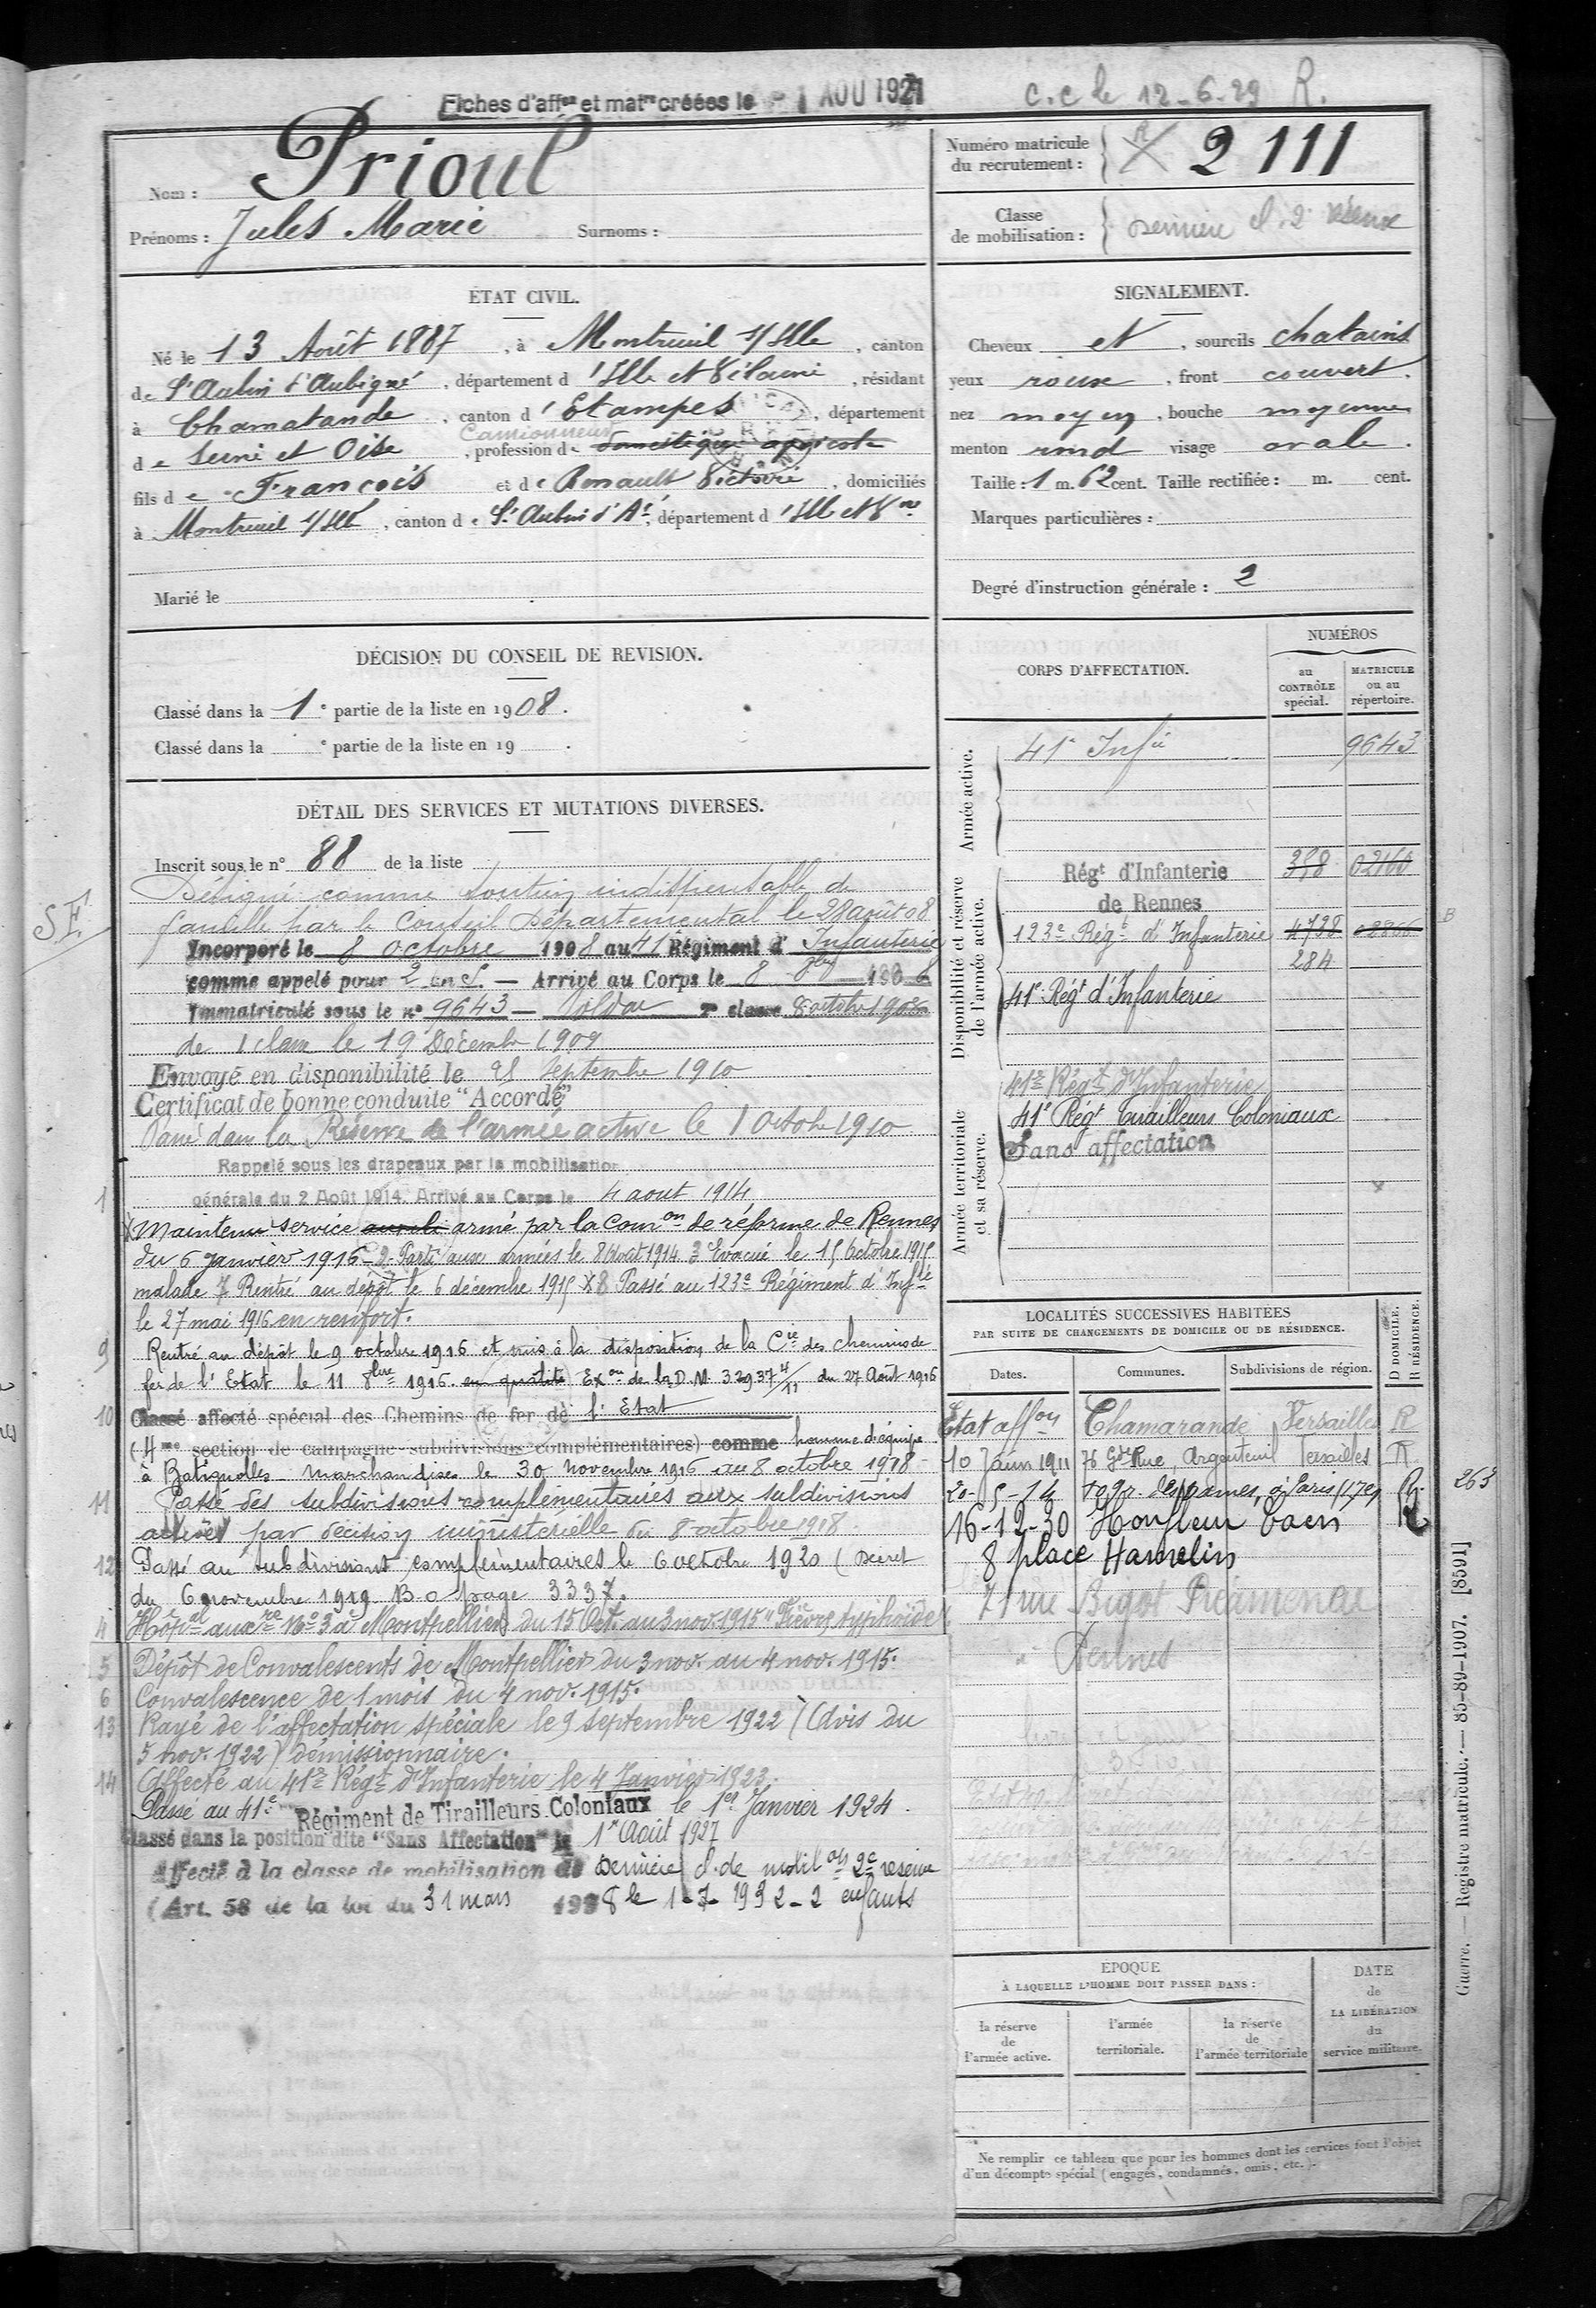 Fiches d'aff<sup>on</sup> et mat<sup>re</sup> créées le 1 AOU 1921
c.c le 12-6-29 R.
Nom : Prioul
Prénoms : Jules Marie Surnoms :
Numéro matricule du recrutement : 2111
Classe de mobilisation : Dernière cl. 2e réserve
ÉTAT CIVIL.
Né le 13 Août 1887, à Montreuil s/Ille, canton
de St Aubin d'Aubigné, département d'Ille et Vilaine, résidant
à Chamarande, canton d'Etampes, département
Camionneur
de Seine et Oise, profession de domestique agricole
fils de François et de Renault Victoire, domiciliés
à Montreuil s/Ille, canton de St Aubin d'Aé, département d'Ille et Vne
Marié le
SIGNALEMENT.
Cheveux et, sourcils chatains
yeux roux, front couvert.
nez moyen, bouche moyenne
menton rond visage ovale.
Taille : 1 m. 62 cent. Taille rectifiée : m. cent.
Marques particulières :
Degré d'instruction générale : 2
DÉCISION DU CONSEIL DE REVISION.
Classé dans la 1e partie de la liste en 1908.
Classé dans la e partie de la liste en 19 .
DÉTAIL DES SERVICES ET MUTATIONS DIVERSES.
Inscrit sous le n° 88 de la liste
S.F.
Désigné comme soutien indispensable de
famille par le Conseil Départemental le 28 août 08
Incorporé le 8 octobre 1908 au 41 Régiment d'Infanterie
comme appelé pour 2 ans. — Arrivé au Corps le 8 8bre 1908
Immatriculé sous le n° 9643 — Soldat 2e classe 8 octobre 1908
de 1 classe le 19 Décembre 1909
Envoyé en disponibilité le 25 Septembre 1910
Certificat de bonne conduite "Accordé"
Passé dans la Réserve de l'armée active le 1 Octobre 1910
Rappelé sous les drapeaux par la mobilisation
1 générale du 2 Août 1914. Arrivé au Corps le 4 aout 1914
X Maintenu service armé par la Comon de réforme de Rennes
du 6 Janvier 1916 - 2 Parti aux armées le 8 Août 1914. 3 Evacué le 15 Octobre 1915
malade 7 Rentré au dépôt le 6 décembre 1915 X 8 Passé au 123e Régiment d'Infie
le 27 mai 1916 en renfort.
9 Rentré au dépôt le 9 octobre 1916 et mis à la disposition de la Cie des chemins de
fer de l'Etat le 11 8bre 1916 en qualité Exon de la D.M. 32937 4/11 du 27 Août 1916
10 Classé affecté spécial des Chemins de fer de l'Etat
(4me section de campagne subdivisions complémentaires) comme homme d'équipe
à Batignolles-marchandises le 30 novembre 1916 au 8 octobre 1918
11 Passé des subdivisions complémentaires aux subdivisions
actives par décision ministérielle du 8 octobre 1918
12 Passé au subdivisions complémentaires le 6 octobre 1920 (Décret
du 6 novembre 1919 B.O page 3337.
4 Hôpal auxre No 3 à Montpellier du 15 Oct. au 3 nov. 1915 "Fièvre typhoïde"
5 Dépôt de Convalescents de Montpellier du 3 nov. au 4 nov. 1915.
6 Convalescence de 1 mois du 4 nov. 1915.
13 Rayé de l'affectation spéciale le 9 septembre 1922 (Avis du
5 nov. 1922) démissionnaire.
14 Affecté au 41e Régt d'Infanterie le 4 Janvier 1923.
Passé au 41e Régiment de Tirailleurs Coloniaux le 1er Janvier 1924.
Classé dans la position dite "Sans Affectation" le 1er Août 1927
Affecté à la classe de mobilisation de Dernière cl. de mobilon 2e réserve
(Art. 58 de la loi du 31 mars 1928 le 1-7-1932 - 2 enfants
CORPS D'AFFECTATION.
NUMÉROS
au CONTRÔLE spécial.
MATRICULE ou au répertoire.
Armée active.
41e Infie 9643
Disponibilité et réserve de l'armée active.
Régt d'Infanterie 398 02160
de Rennes
123e Régt d'Infanterie 4728
284
B
41e Régt d'Infanterie
Armée territoriale et sa réserve.
41e Régt d'Infanterie
41e Régt Tirailleurs Coloniaux
Sans affectation
LOCALITÉS SUCCESSIVES HABITÉES
PAR SUITE DE CHANGEMENTS DE DOMICILE OU DE RÉSIDENCE.
D DOMICILE. R RÉSIDENCE.
Dates. Communes. Subdivisions de région.
Etat affon Chamarande Versailles R
10 Janv 1911 76 Gde Rue, Argenteuil Versailles R
20-5-14 des Dames, à Paris (17e) R.
16-12-30 Honfleur Caen R
8 place Hamelin
71 rue Bigot Préameneu
à Rennes
263
ÉPOQUE
À LAQUELLE L'HOMME DOIT PASSER DANS :
la réserve de l'armée active.
l'armée territoriale.
la réserve de l'armée territoriale
DATE de LA LIBÉRATION du service militaire.
Ne remplir ce tableau que pour les hommes dont les services font l'objet
d'un décompte spécial (engagés, condamnés, omis, etc.).
Guerre. — Registre matricule. — 85-89-1907. [8591]